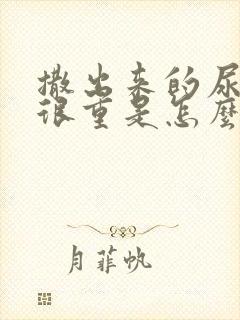 撒出来的尿
很重是怎麽
月菲帆